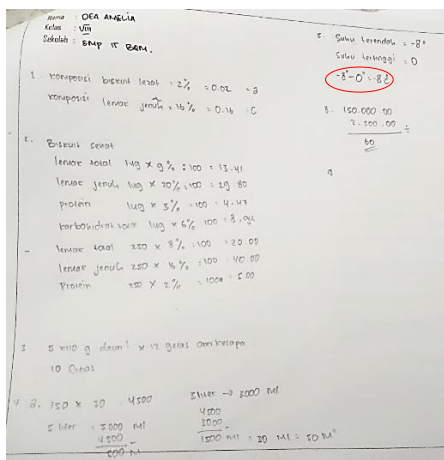 Nama : DEA AMELIA
Kelas : VIII
Sekolah : SMP IT BQM.
1. komposisi biskuit lezat = 2% = 0.02 = a
komposisi lemak jenuh = 16% = 0.16 = c
2. Biskuit sehat
lemak total 149 x 9% : 100 = 13.41
lemak jenuh 149 x 20% : 100 = 29.80
protein 149 x 3% : 100 = 4.47
karbohidrat total 149 x 6% 100 = 8.94
- lemak total 250 x 8% : 100 = 20.00
lemak jenuh 250 x 16% : 100 = 40.00
Protein 250 x 2% : 100 = 5.00
3 5 g daun x 12 gelas
10 Gelas
4 a. 150 x 30 4500
5 liter = 5000 ml
4500
500 ml
3 liter → 3000 ml
4500
3000
1500 ml : 30 ml = 50 m
5. Suhu terendah = -8°
Suhu tertinggi = 0
-8°-0°=-8°
8. 150.000.00
2.500.00 ÷
60